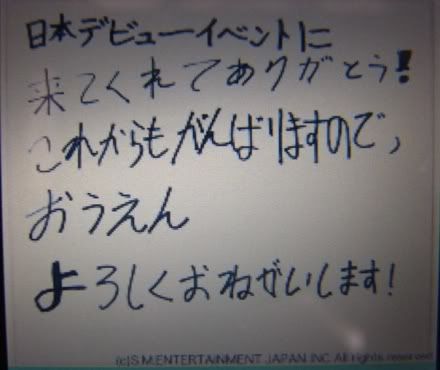 日本デビューイベントに
来てくれてありがとう!
これからもがんばりますので、
おうえん
よろしくおねがいします!
(c)S.M.ENTERTAINMENT JAPAN INC. All rights reserved.